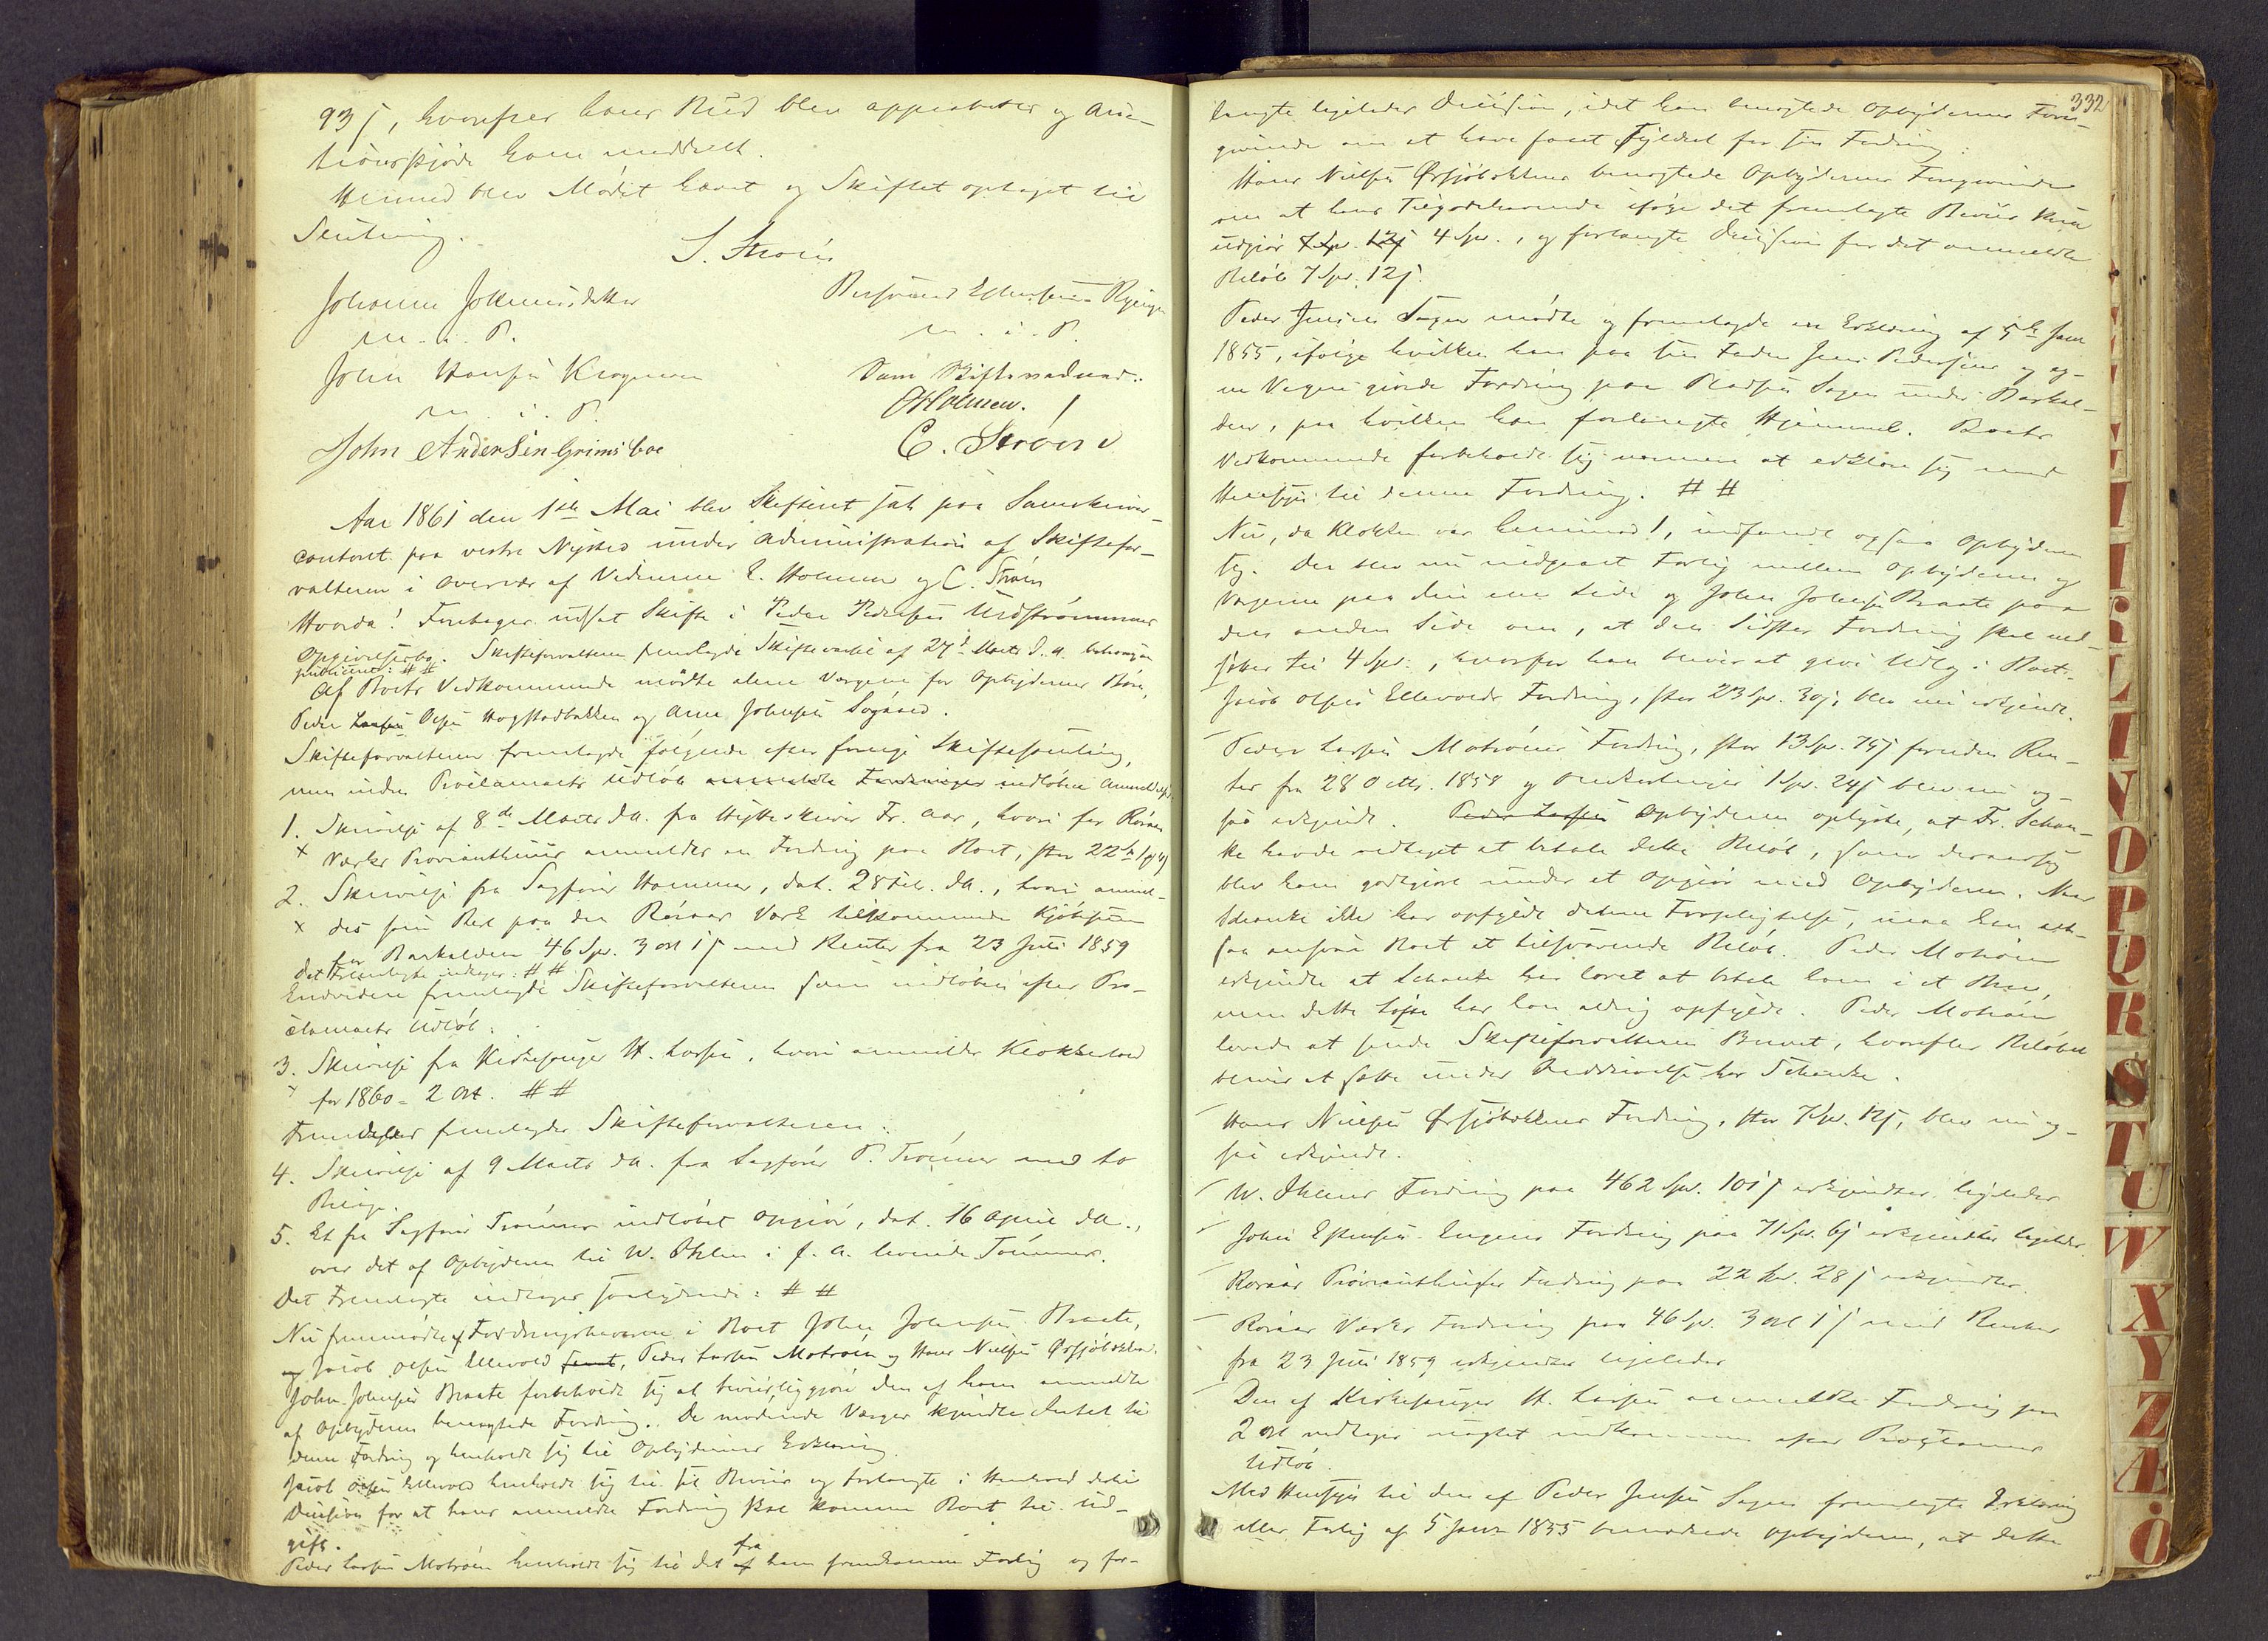 93ſ, hvorefter hans Bud blev approberet og Auc-
tionsskjøde ham meddelt.
Hermed blev Mødet hævet og Skiftet optaget til
Slutning.
S. Strøm
Johanne Johnsdatter
m. i. P.
Estensen
m. i. P.
John Hansen Krogmoen
m. i. P.
Som Skiftevidner:
E Holmen.
John Andersen Grimsboe
C. Strøm
Aar 1861 den 1ste Mai blev Skifteret sat paa Sorenskriver-
contoret paa vestre Nysted under Administration af Skiftefor-
valteren i Overvær af Vidnerne E. Holmen og C. Strøm
Hvorda! Foretages udsat Skifte i Peder Pedersen Urdstrømmens
Opgivelsesbo. Skifteforvalteren fremlagde Skiftevarsel af 27de Marts d. A. behørigen
publiceret: ##
Af Boets Vedkommende mødte alene Værgerne for Opbyderens Børn,
Peder Olsen Hogstadbakken og Arne Johnsen Søgaard.
Skifteforvalteren fremlagde følgende efter forrige Skiftesamling,
men inden Proclamaets Udløb anmeldte Fordringer indløbne Anmeldelser
1. Skrivelse af 8de Marts d.A. fra Hytteskriver Fr. Aas, hvori for Røraas
x Værks Provianthuus anmeldes en Fordring paa Boet, stor 22
2. Skrivelse fra Sagfører Hammer, dat. 28 Feb. d.A., hvori anmel-
x des som Rest paa den Røraas Værk tilkommende Kjøbesum
for Barkalden 46 Spd. 3 ort 1ſ med Renter fra 23 Juli 1859
Det Fremlagte indtages: ##
Endvidere fremlagde Skifteforvalteren som indløben efter Pro-
clamaets Udløb:
3. Skrivelse fra Kirkesanger H. Larsen, hvori anmeldes Klokkertold
x for 1860 = 2 Ort. ##
Fremdeles fremlagde Skifteforvalteren:
4. Skrivelse af 9 Marts d.A. fra Sagfører P. Trønnes med to
Bilage.
5. Et fra Sagfører Trønnes indløbet Opgjør, dat. 16 April d.A.,
over det af Opbyderen til W. Ihlen i f. A. leverede Tømmer.
Det Fremlagte indtages saalydende: ##
Nu fremmødte af Fordringshaverne i Boet John Johnsen Braate,
og Jacob Olsen Ellevold samt, Peder Larsen Motrøen og Hans Nielsen Ørsjøbakken.
John Johnsen Braate forbeholdt sig at beviisliggjøre den af ham anmeldte
af Opbyderen benægtede Fordring. De mødende Værger kjendte Intet til
denne Fordring og henholdt sig til Opbyderens Erklæring.
Jacob Olsen Ellevold henholdt sig til sit Beviis og forlangte i Henhold dertil
Decision for at hans anmeldte Fordring skal komme Boet til Ud-
gift.
Peder Larsen Motrøen henholdt sig til det af fra ham fremkomne Forlig og for-
332
langte ligeledes Decision, idet han benægtede Opbyderens Fore-
givende om at have faaet Fyldest for sin Fordring.
Hans Nielsen Ørsjøbakken benægtede Opbyderens Foregivende
om at hans Tilgodehavende ifølge det fremlagte Beviis kun
udgjør 7 Spd. 12ſ 4 Spd., og forlangte Decision for det anmeldte
Beløb 7 Spd. 12ſ.
Peder Jensen Sagen mødte og fremlagde en Erklæring af 5te Janr
1855, ifølge hvilken han paa sin Fader Jens Pedersens og eg-
ne Vegne gjorde Fordring paa Pladsen Sagen under Barkal-
den, paa hvilken han forlangte Hjemmel. Boets
Vedkommende forbeholdt sig nærmere at erklære sig med
Hensyn til denne Fordring. ##
Nu, da Klokken var henimod 1, indfandt ogsaa Opbyderen
sig. Der blev nu indgaaet Forlig mellem Opbyderen og
Værgerne paa den ene Side og John Johnsen Braate paa
den anden Side om, at den Sidstes Fordring skal ned-
sættes til 4 Spd., hvorfor han bliver at give Udlæg i Boet.
Jacob Olsen Ellevolds Fordring, stor 23 Spd. 30ſ, blev nu erkjendt.
Peder Larsen Motrøens Fordring, stor 13 Spd. 74ſ foruden Ren-
ter fra 28 Octbr. 1858 og Omkostninger 1 Spd. 24ſ blev nu og-
saa erkjendt. Peder Larsen Opbyderen oplyste, at Fr. Schan-
ke havde vedtaget at betale dette Beløb, som derved
blev ham godtgjort under et Opgjør med Opbyderen. Naar
Schanke ikke har opfyldt denne Forpligtelse, maa han alt-
saa ansvare Boet et tilsvarende Beløb. Peder Motrøen
erkjendte at Schanke har lovet at betale ham i et Brev,
men dette Løfte har han aldrig opfyldt. Peder Motrøen
lovede at sende Skifteforvalteren Brevet, hvorefter Beløbet
bliver at sætte under Inddrivelse hos Schanke.
Hans Nielsen Ørsjøbakkens Fordring, stor 7 Spd. 12ſ, blev nu og-
saa erkjendt.
W. Ihlens Fordring paa 462 Spd. 101ſ erkjendtes ligeledes
John Estensen Engens Fordring paa 71 Spd. 6ſ erkjendtes ligeledes.
Røraas Provianthuses Fordring paa 22 Spd. 28ſ erkjendtes.
Røraas Værks Fordring paa 46 Spd. 3 ort 1ſ med Renter
fra 23 Juli 1859 erkjendtes ligeledes
Den af Kirkesanger H. Larsen anmeldte Fordring paa
2 ort vedtages uagtet indkommen efter Proclamas
Udløb.
Med Hensyn til den af Peder Jensen Sagen fremlagte Erklæring
eller Forlig af 5 Janr 1855 bemærkede Opbyderen, at dette
I
K
L
N
O
P
Q
R
S
T
U
W
X
Y
Z
Æ
Ø